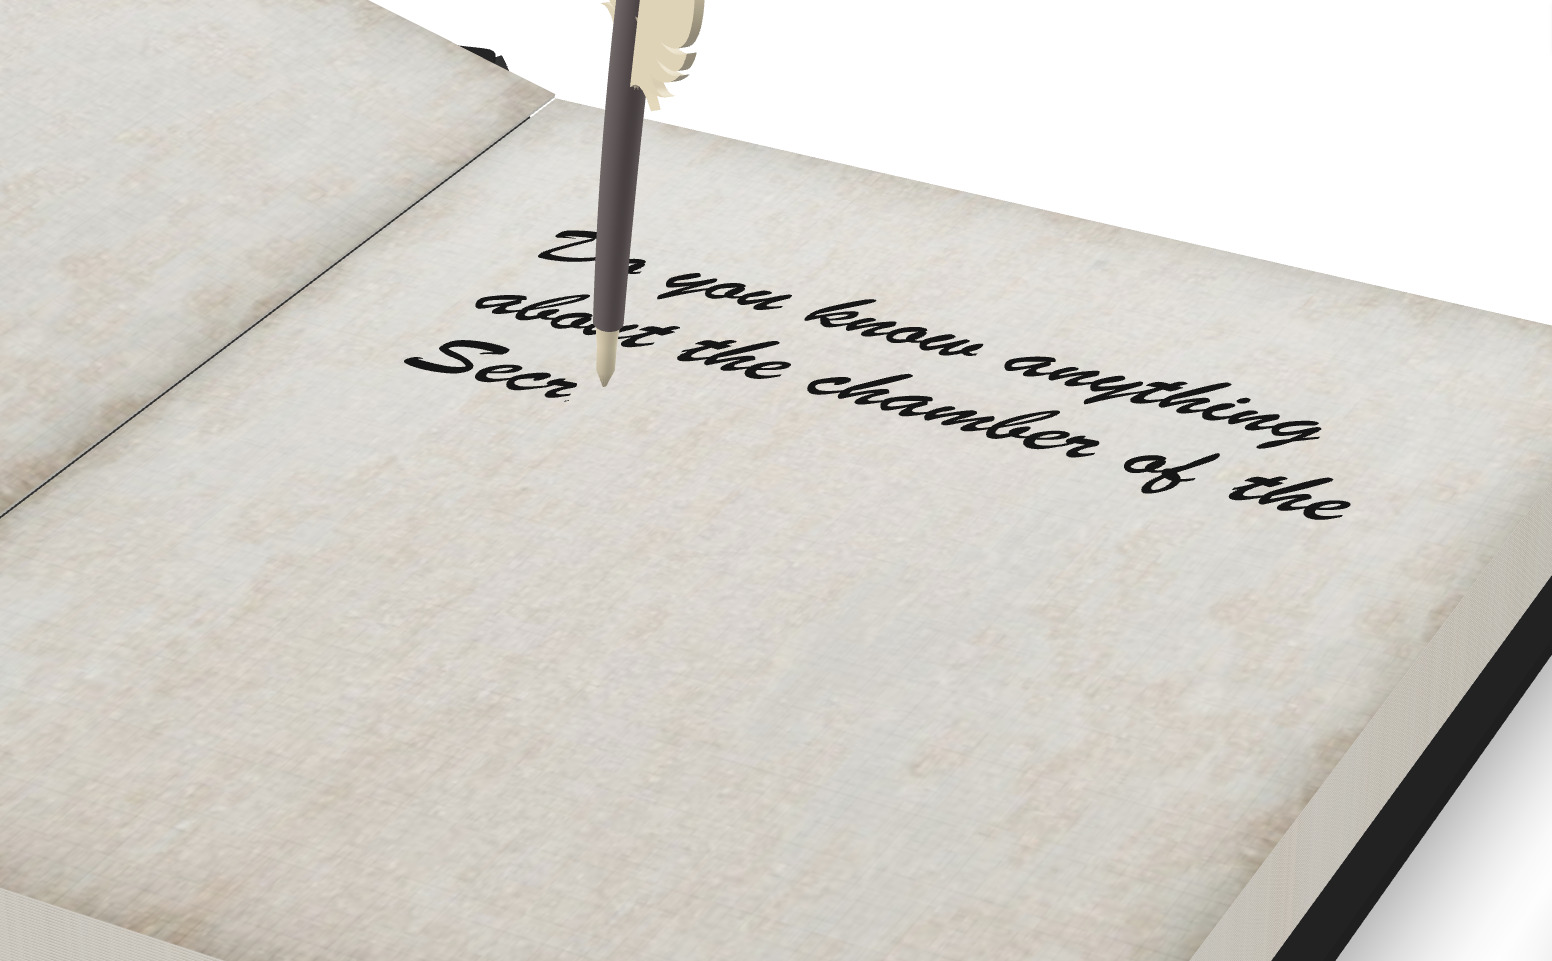 Do you know anything
about the chamber of the
Secr